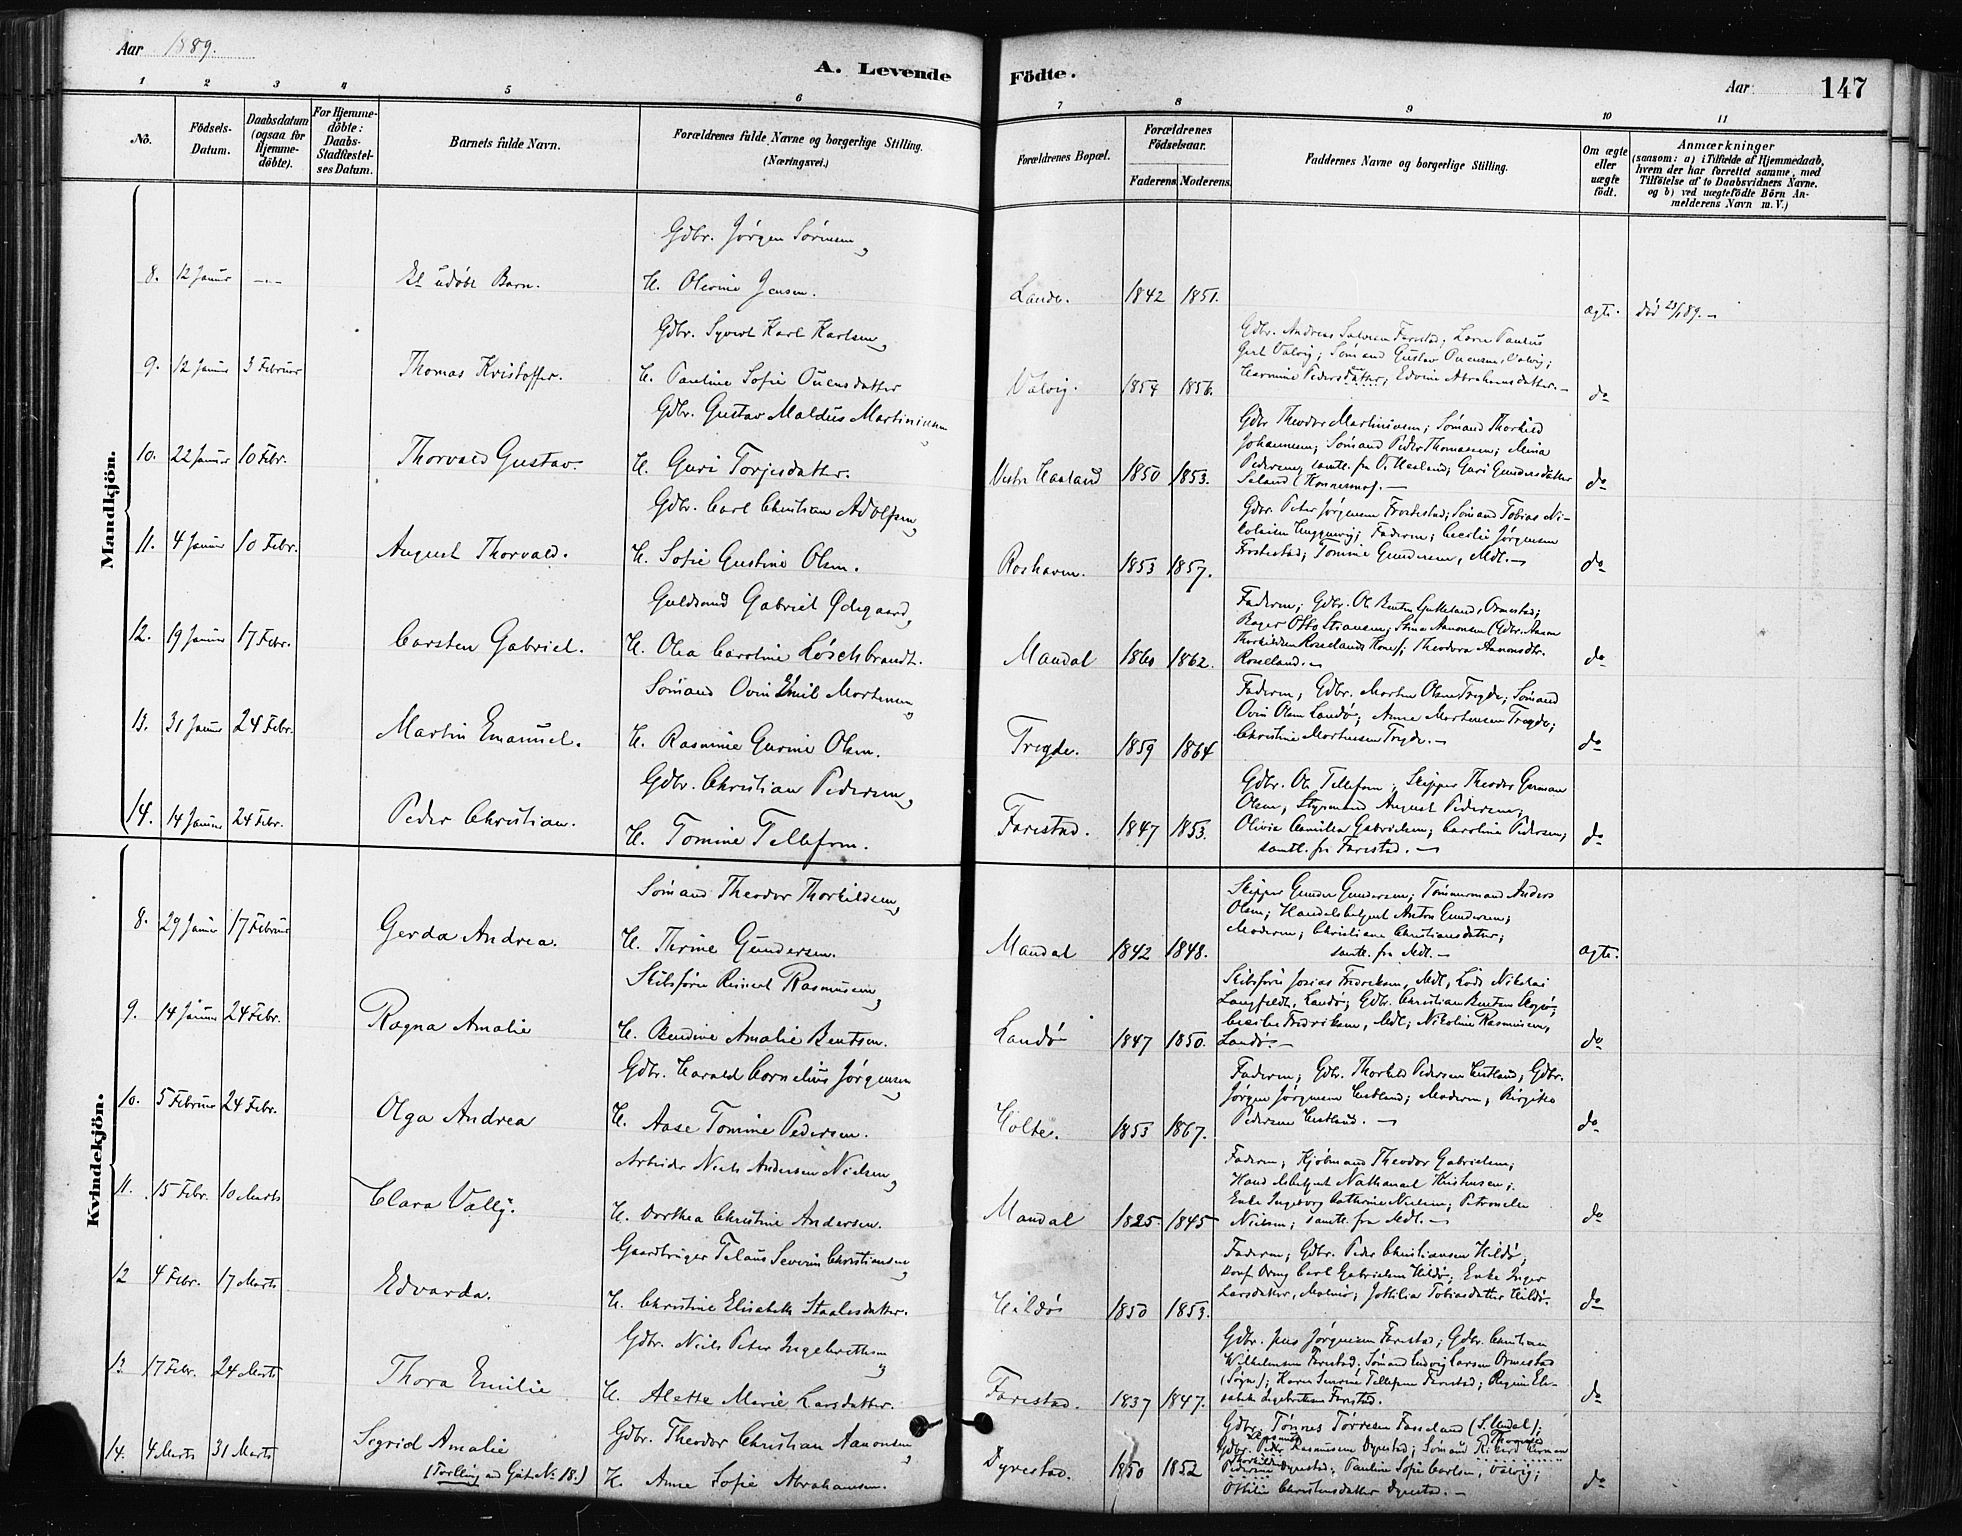 Aar 1889.
A. Levende Födte.
Aar
147
1 2 3 4 5 6 7 8 9 10 11
No.
Födsels-Datum.
Daabsdatum (ogsaa for Hjemmedöbte).
For Hjemmedöbte: Daabs-Stadfæstelses Datum.
Barnets fulde Navn.
Forældrenes fulde Navne og borgerlige Stilling. (Næringsvei.)
Forældrenes Bopæl.
Forældrenes Födselsaar.
Faderens. Moderens.
Faddernes Navne og borgerlige Stilling.
Om ægte eller uægte födt.
Anmærkninger
(saasom: a) i Tilfælde af Hjemmedaab, hvem der har forrettet samme, med Tilföielse af to Daabsvidners Navne, og b) ved uægtefödte Börn Anmelderens Navn m. V.)
Mandkjön.
Gdbr. Jørgen Sørensen,
8. 12 Januar -.- Et udøbt Barn. H. Olevine Jensen. Landø. 1842 1851. ægte. død 23/1 89. -
Gdbr. Syvert Karl Karlsen,
9. 12 Januar 3 Februar Thomas Kristoffer. H. Pauline Sofie Ouensdatter Valvig. 1854 1856. do
Valvig; Sømand Gustav Ouensen, Valvig;
Hermine Pedersdatter; Edvine Abrahamsdatter. -
Gdbr. Gustav Maldus Martiniusen
10. 22 Januar 10 Febr. Thorvald Gustav. H. Guri Torjesdatter. Vestre Haaland 1850 1853. do
Gdbr Theodor Martiniusen; Sømand Thorkild
Johannesen; Sømand Peder Thomassen; Mina
Pedersen, samtl. fra V. Haaland; Guri Gundersdatter
Gdbr. Carl Christian Adolfsen,
11. 4 Januar 10 Febr. August Thorvald. H. Sofie Gustine Olsen. Roshavn. 1853 1857. do
Gdbr. Peter Jørgensen; Sømand Tobias Ni-
Faderen; Cecilie Jørgensen
Tomine Gundersen, Mdl. -
Guldsmed Gabriel Ødegaard,
12. 19 Januar 17 Febr. Carsten Gabriel. H. Olea Caroline Löschbrandt. Mandal 1860 1862. do
Faderen; Gdbr. Ole Bentsen Ormestad;
Bager Otto; Stina Aanonsen (Gdbr. Aanon
Thorkildsen Roselands Kone); Theodora Aanonsdtr.
Roseland. -
Sømand Ovin Emil Mortensen,
13. 31 Januar 24 Febr. Martin Emanuel. H. Rasmine Gurine Olsen. Tregde. 1859 1864 do
Faderen; Gdbr. Morten Olsen Tregde; Sømand
Ovin Olsen Landø; Anne Mortensen Tregde;
Christine Mortensen Tregde. -
Gdbr. Christian Pedersen,
14. 14 Januar 24 Febr. Peder Christian. H. Tomine Tellefsen. Farestad. 1847 1853. do
Gdbr. Ole Tellefsen; Skipper Theodor German
Olsen; Styrmand August Pedersen;
Olivia Camilla Gabrielsen; Caroline Pedersen;
samtl. fra Farestad. -
Kvindekjön.
Sømand Theodor Thorkildsen,
8. 29 Januar 17 Februar Gerda Andrea. H. Thrine Gundersen. Mandal 1842 1848. ægte.
Skipper Gunder Gundersen; Tømmermand Anders
Olsen; Handelsbetjent Anton Gundersen;
Moderen; Christiane Christiansdatter;
samtl. fra Mdl. -
Skibsfører Reinert Rasmussen,
9. 14 Januar 24 Febr. Ragna Amalie H. Bendine Amalie Bentsen. Landø 1847 1850. do
Skibsfører Josias Fredriksen, Mdl, Lods Nikolai
Langfeldt, Landø; Gdbr. Christian Bentsen Skogsø;
Cecilie Fredriksen, Mdl; Nikoline Rasmussen,
Landø. -
Gdbr. Harald Cornelius Jørgensen,
10. 5 Februar 24 Febr. Olga Andrea H. Aase Tomine Pedersen. Holte. 1853 1867. do
Faderen; Gdbr. Thorkild Pedersen; Gdbr.
Jørgen Jørgensen; Moderen; Birgitte
Pedersen -
Arbeider Niels Andersen Nielsen,
11. 15 Febr. 10 Marts Clara Vally. H. Dorthea Christine Andersen. Mandal 1825. 1845 do
Faderen; Kjøbmand Theodor Gabrielsen;
Handelsbetjent Nathanael Kristensen;
Enke Ingeborg Cathrine Nielsen; Petronelle
Nielsen; samtl. fra Mdl. -
Gaardbruger Telaus Severin Christiansen,
12 4 Febr. 17 Marts Edvarda. H. Christine Elisabeth Staalesdatter. Hildø 1850 1853. do
Faderen; Gdbr. Peder Christiansen Hildø;
Carl Gabrielsen Hildø; Enke Inger
Larsdatter, Malmø; Tobiasdatter Hildø.
Gdbr. Niels Peter Ingebrethsen,
13 17 Febr. 24 Marts Thora Emilie H. Alette Marie Larsdatter. Farestad. 1837 1847. do
Gdbr. Jens Jørgensen Farestad; Gdbr. Christian
Wilhelmsen Farestad; Sømand Ludvig Larsen Ormestad
(Søgn); Karen Severine Tellefsen Farestad; Regine Eli-
sabeth Ingebretsen Farestad.
Gdbr. Theodor Christian Aanonsen,
14. 4 Marts 31 Marts Sigrid Amalie (Tvilling med Gut No 18.) H. Anne Sofie Abrahamsen. Dyrestad. 1850 1852 do
Gdbr. Tønnes Tørresen Fasseland (S. Undal);
Gdbr. Peder Rasmussen Dyrestad; Sømand
Pedersen Dyrestad; Pauline Sofie Carlsen, Valvig;
Ottilie Christensdatter Dyrestad. -